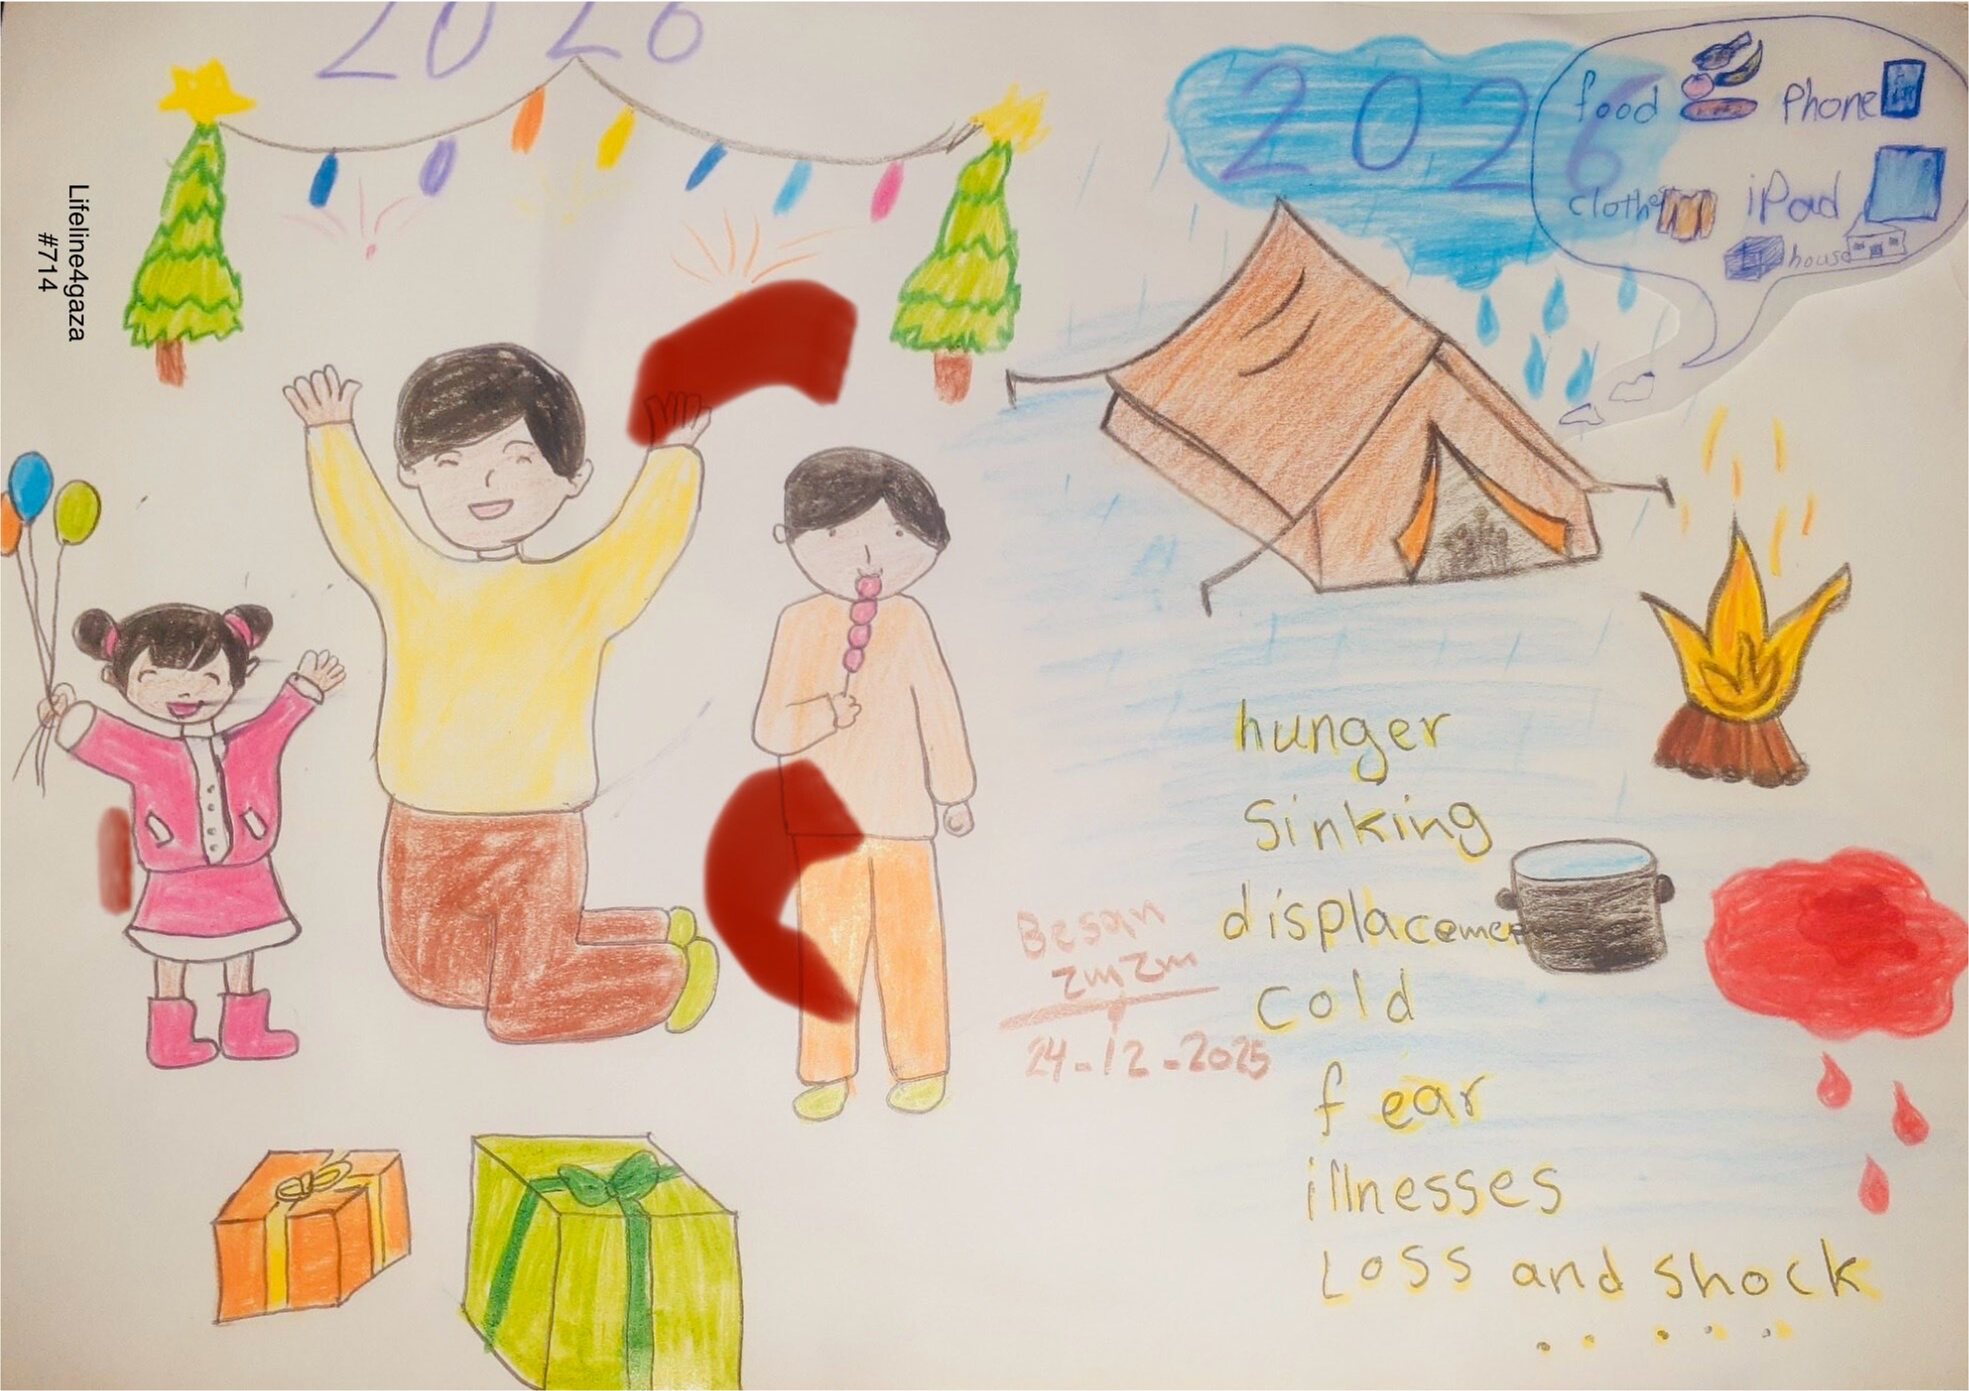 2026
Lifeline4gaza
#714
2026
food
phone
clothes
iPad
house
hunger
Sinking
displacement
cold
fear
illnesses
Loss and shock
.....
Besan
zmzm
24-12-2025